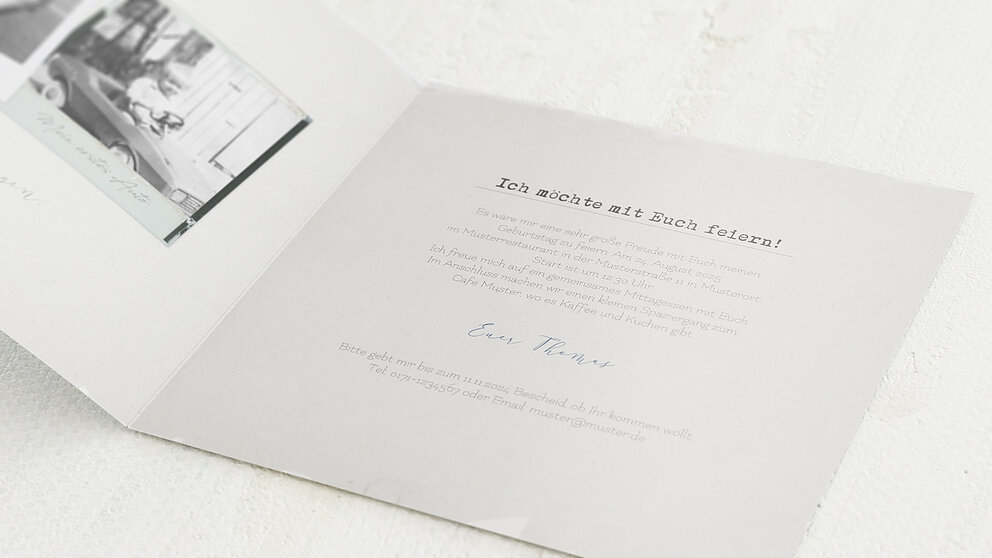 Mein erstes Auto
Ich möchte mit Euch feiern!
Es wäre mir eine sehr große Freude mit Euch meinen
Geburtstag zu feiern. Am 24. August 2025
im Musterrestaurant in der Musterstraße 11 in Musterort
Start ist um 12.30 Uhr
Ich freue mich auf ein gemeinsames Mittagessen mit Euch
Im Anschluss machen wir einen kleinen Spaziergang zum
Cafe Muster, wo es Kaffee und Kuchen gibt
Euer Thomas
Bitte gebt mir bis zum 11.11.2024 Bescheid, ob Ihr kommen wollt
Tel. 0171-1234567 oder Email muster@muster.de